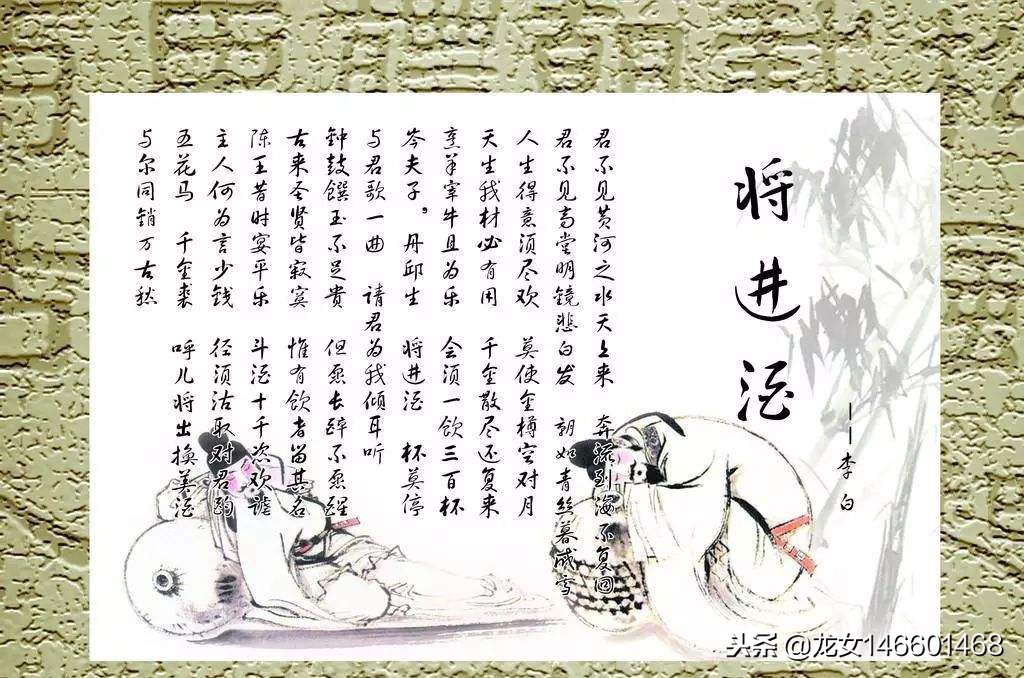 将进酒
——李白
君不见黄河之水天上来 奔流到海不复回
君不见高堂明镜悲白发 朝如青丝暮成雪
人生得意须尽欢 莫使金樽空对月
天生我材必有用 千金散尽还复来
烹羊宰牛且为乐 会须一饮三百杯
岑夫子，丹邱生 将进酒 杯莫停
与君歌一曲 请君为我倾耳听
钟鼓馔玉不足贵 但愿长醉不愿醒
古来圣贤皆寂寞 惟有饮者留其名
陈王昔时宴平乐 斗酒十千恣欢谑
主人何为言少钱 径须沽取对君酌
五花马 千金裘 呼儿将出换美酒
与尔同销万古愁
头条 @龙女146601468